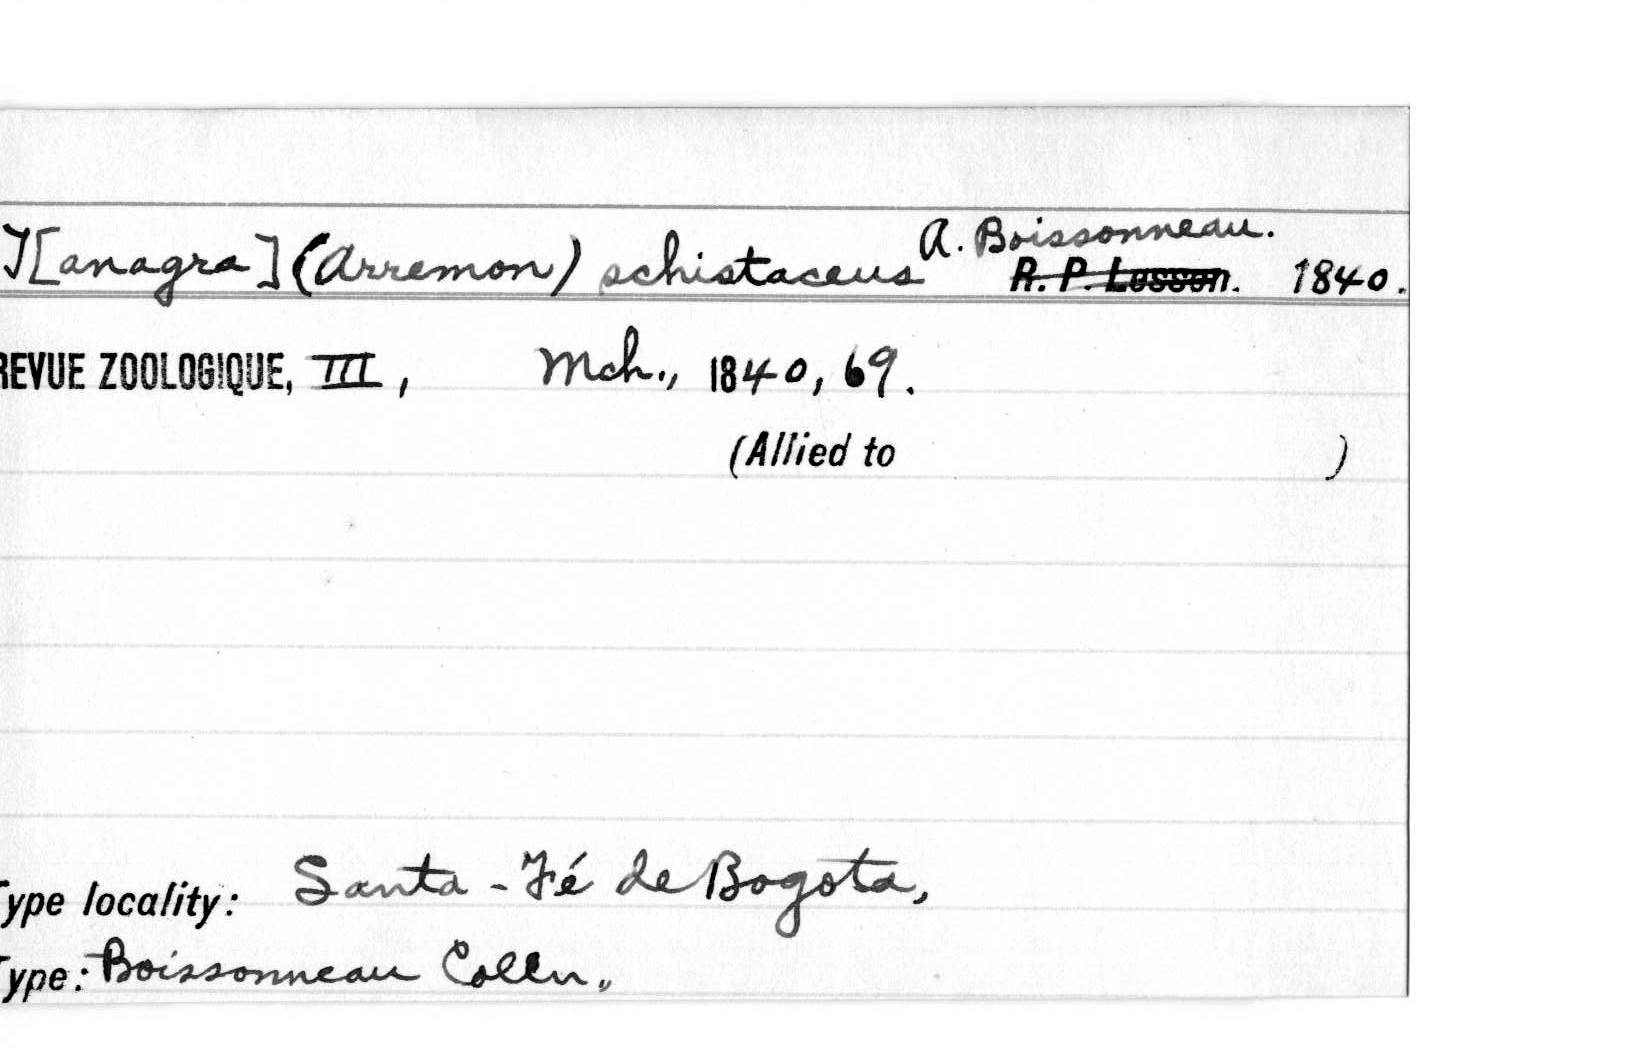 T[anagra] (Arremon) schistaceus A. Boissonneau.
R. P. Lesson. 1840.
REVUE ZOOLOGIQUE, III, Mch., 1840, 69.
(Allied to )
Type locality: Santa-Fé de Bogota,
Type: Boissonneau Colln.